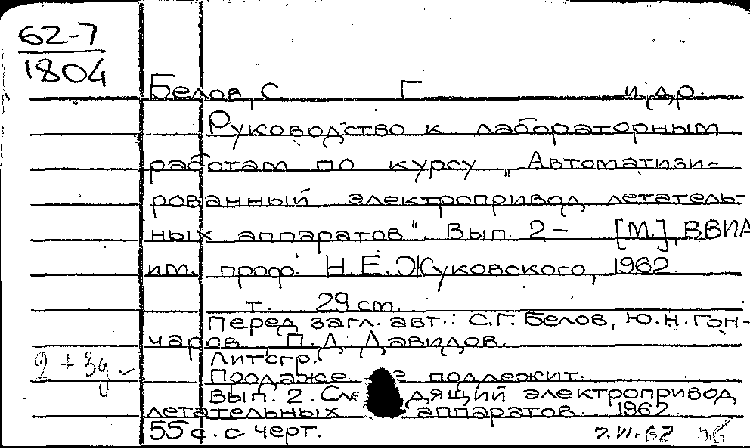 62-7
1804
Белов, С Г и др.
Руководство к лабораторным
работам по курсу „Автоматизи-
рованный электропривод летатель-
ных аппаратов". Вып. 2- [М.], ВВИА
им. проф. Н.Е. Жуковского, 1962
т. 29 cm.
Перед загл. авт.: С.Г. Белов, Ю.Н. Гон-
чаров П.Д. Давидов.
Литогр.
Продаже подлежит.
2 + 3д
Вып. 2. Сле дящий электропривод
летательных аппаратов. 1962
55 с. с черт.